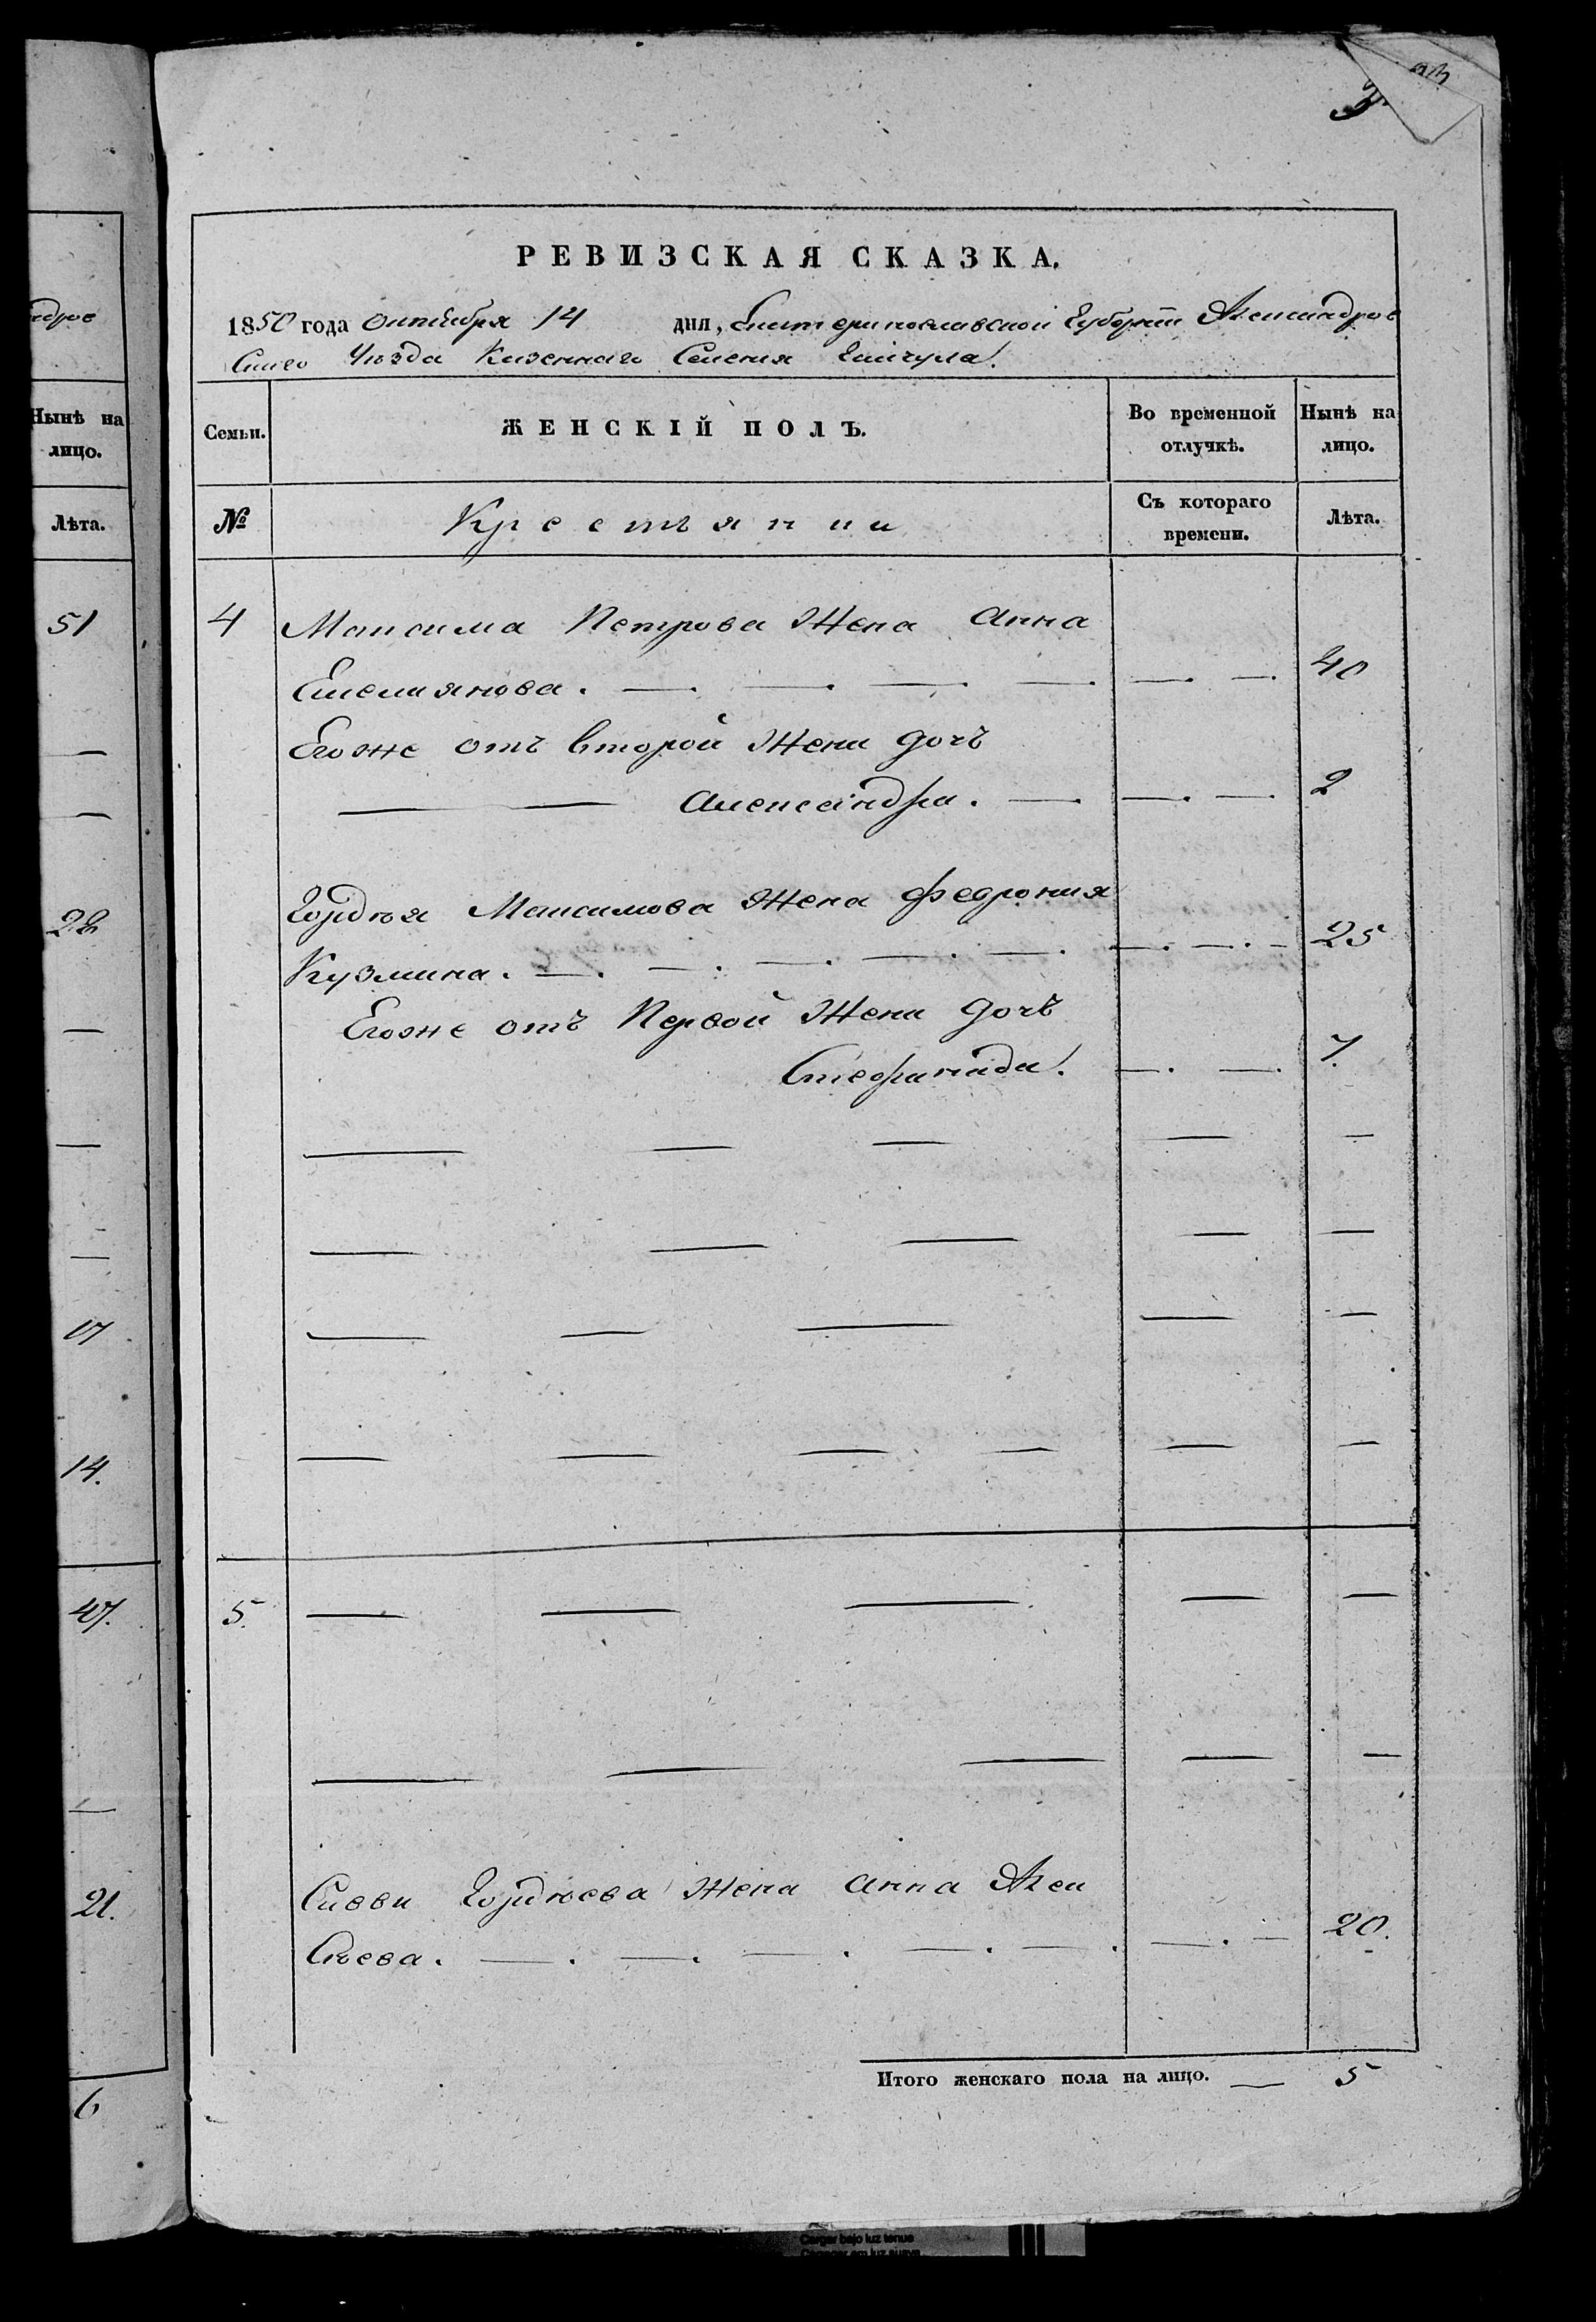 РЕВИЗСКАЯ СКАЗКА.
1850 года Октября 14 дня, Екатеринославской Губернiи Александров
Скаго Уѣзда Казеннаго Селенiя
Нынѣ на
лицо.
Семьи.
ЖЕНСКІЙ ПОЛЪ.
Во временной
отлучкѣ.
Нынѣ на
лицо.
Лѣта.
№
Крестьянки
Съ котораго
времени.
Лѣта.
51
4 Максима Петрова Жена Анна
Емелианова. — . — . — . — . — . — . 40
Егоже отъ второй Жени дочъ
— — Александра. — . — . — . 2
28
Гордѣя Максимова Жена Феврония
Кузмина. — . — . — . — . — . — . — . — 25
Егоже отъ Первой Жени дочъ
Стефанида. — . — . 7.
— — — — —
— — — — —
17
— — — — —
14.
— — — — — —
47.
5. — — — — —
— — — — —
21.
Савви Гордѣева Жена Анна Алек
Сѣева. — . — . — . — . — . — . — 20.
Итого женскаго пола на лицо. — 5
6